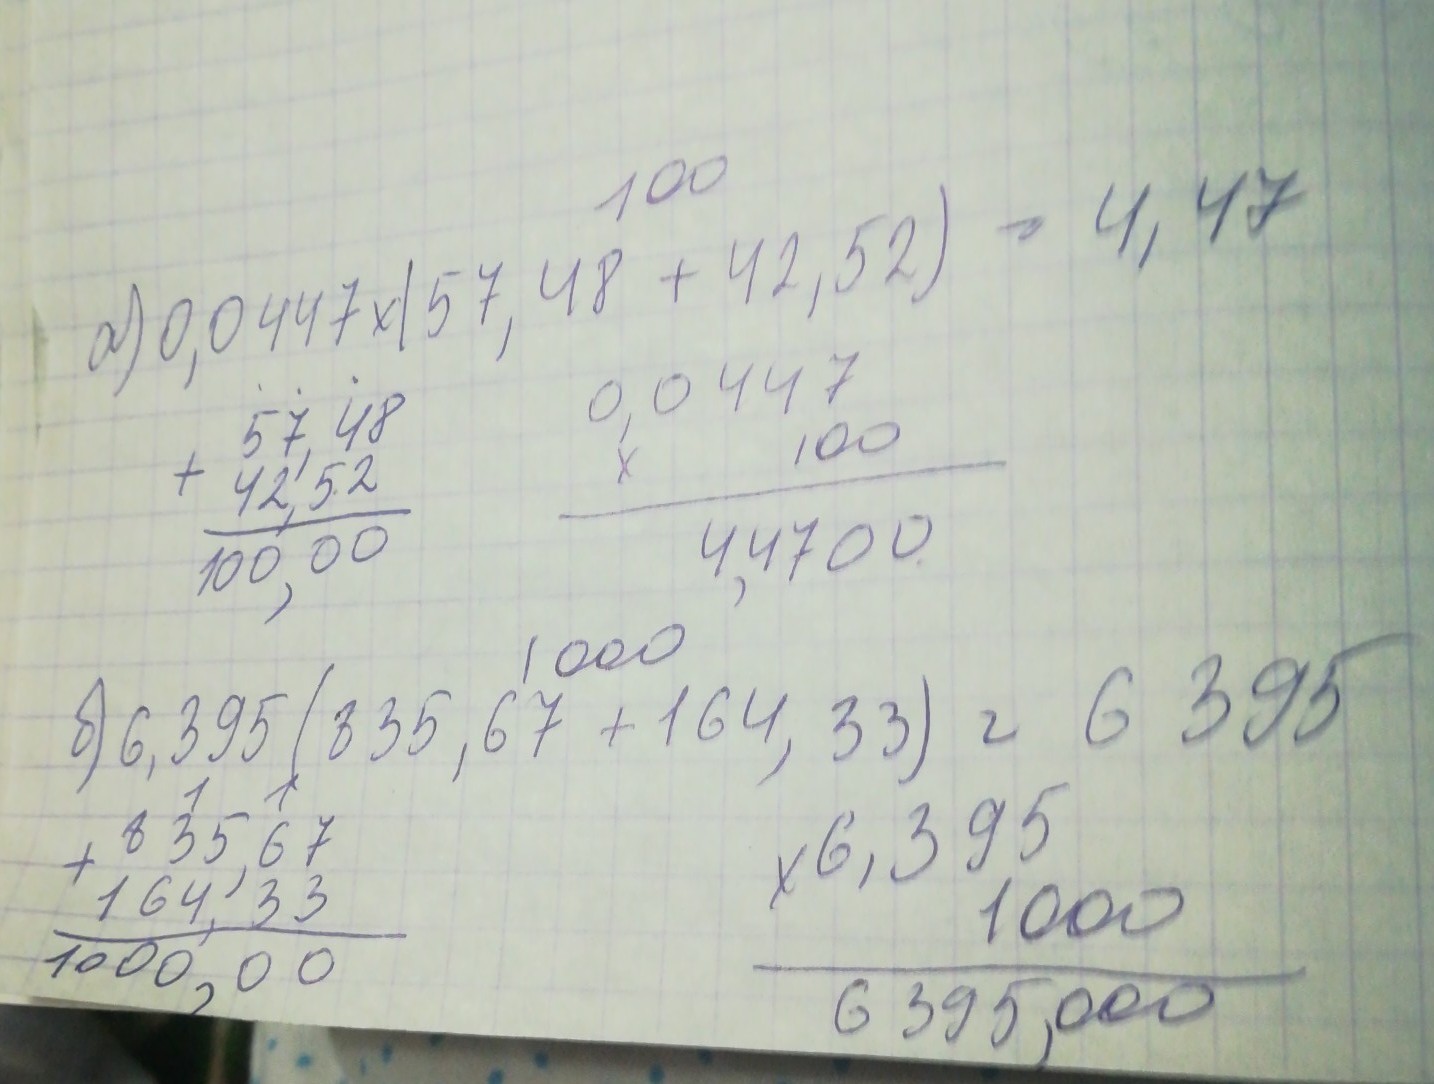 100
а) 0,0447 x (57,48 + 42,52) = 4,47
57,48
+ 42,52
100,00
0,0447
x 100
4,4700
1000
б) 6,395 (835,67 + 164,33) = 6 395
1 1
+ 835,67
164,33
1000,00
x 6,395
1000
6 395,000